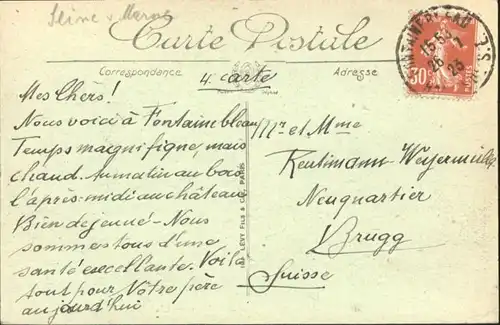 Seine & Marne
Carte Postale
Correspondance
Adresse
4 carte
Mes Chers!
Nous voici à Fontainebleau
Temps magnifique, mais
chaud. Au matin au bois
l'après-midi au château
Bien dejeuné - Nous
sommes tous d'une
santé excellente. Voilà
tout pour Nôtre père
aujourd'hui
Mr et Mme
Neuquartier
Brugg
Suisse
LEVY FILS & CIE, PARIS
FONTAINEBLEAU
15 55
26
23
30
POSTES